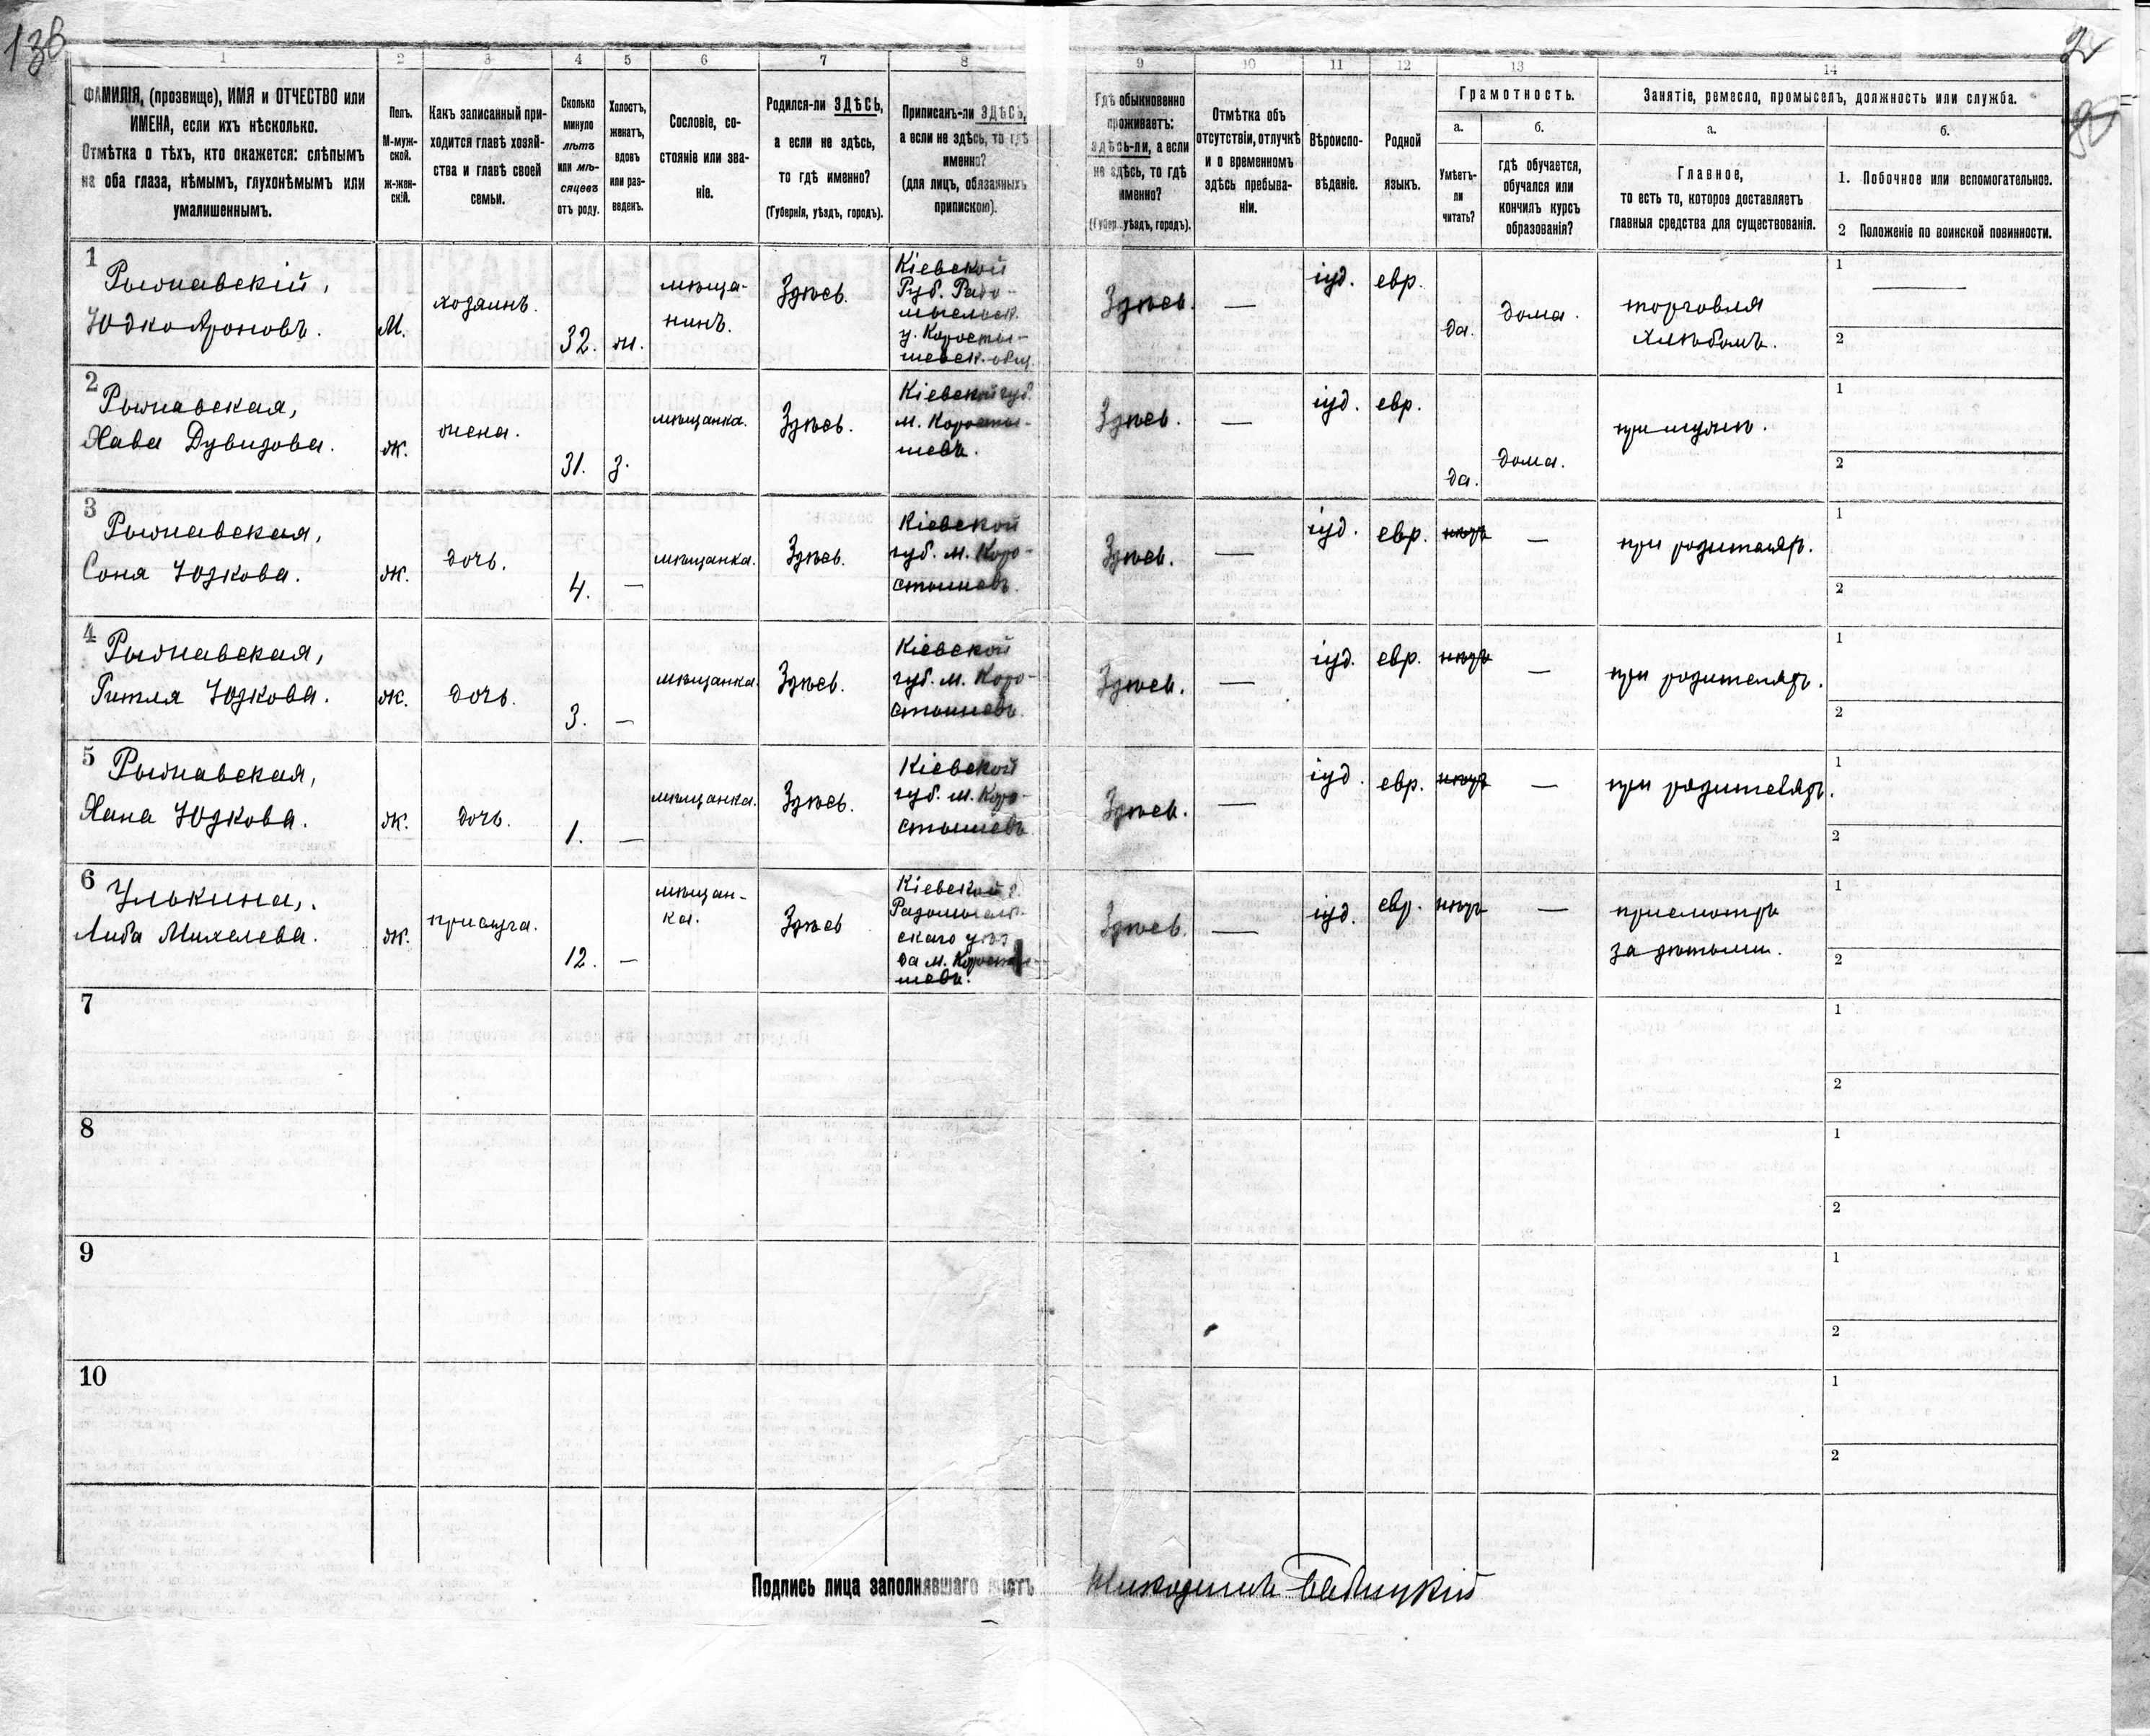 136
2
1
2
3
4
5
6
7
8
9
10
11
12
13
14
ФАМИЛІЯ, (прозвище), ИМЯ и ОТЧЕСТВО или
ИМЕНА, если ихъ нѣсколько.
Отмѣтка о тѣхъ, кто окажется: слѣпымъ
на оба глаза, нѣмымъ, глухонѣмымъ или
умалишеннымъ.
Полъ.
М-муж-
ской.
ж-жен-
скій.
Какъ записанный при-
ходится главѣ хозяй-
ства и главѣ своей
семьи.
Сколько
минуло
лѣтъ
или мѣ-
сяцевъ
отъ роду.
Холостъ,
женатъ,
вдовъ
или раз-
веденъ.
Сословіе, со-
стояніе или зва-
ніе.
Родился-ли ЗДѢСЬ,
а если не здѣсь,
то гдѣ именно?
(Губернія, уѣздъ, городъ).
Приписанъ-ли ЗДѢСЬ,
а если не здѣсь, то гдѣ
именно?
(для лицъ, обязанныхъ
припискою).
Гдѣ обыкновенно
проживаетъ:
здѣсь-ли, а если
не здѣсь, то гдѣ
именно?
(Губер. уѣздъ, городъ).
Отмѣтка объ
отсутствіи, отлучкѣ
и о временномъ
здѣсь пребыва-
ніи.
Вѣроиспо-
вѣданіе.
Родной
языкъ.
Грамотность.
а.
б.
Умѣетъ-
ли
читать?
гдѣ обучается,
обучался или
кончилъ курсъ
образованія?
Занятіе, ремесло, промыселъ, должность или служба.
а.
б.
Главное,
то есть то, которое доставляетъ
главныя средства для существованія.
1. Побочное или вспомогательное.
2 Положеніе по воинской повинности.
1
Рыжавскій,
Юдко Ароновъ.
М.
хозяинъ.
32.
ж.
мѣща-
нинъ.
Здѣсь.
Кіевской
Губ. Радо-
мысльск.
у. Коросты-
шевск. общ.
Здѣсь.
—
іуд.
евр.
да.
дома.
торговля
хлѣбомъ.
1
2
2
Рыжавская,
Хава Дувидова.
ж.
жена.
31.
з.
мѣщанка.
Здѣсь.
Кіевской губ.
м. Коросты-
шевъ.
Здѣсь.
—
іуд.
евр.
да.
дома.
при мужѣ.
1
2
3
Рыжавская,
Соня Юдкова.
ж.
дочь.
4.
—
мѣщанка.
Здѣсь.
Кіевской
губ. м. Коро-
стышевъ.
Здѣсь.
—
іуд.
евр.
нѣтъ
—
при родителяхъ.
1
2
4
Рыжавская,
Гитля Юдкова.
ж.
дочь.
3.
—
мѣщанка.
Здѣсь.
Кіевской
губ. м. Коро-
стышевъ.
Здѣсь.
—
іуд.
евр.
нѣтъ
—
при родителяхъ.
1
2
5
Рыжавская,
Хана Юдкова.
ж.
дочь.
1.
—
мѣщанка.
Здѣсь.
Кіевской
губ. м. Коро-
стышевъ
Здѣсь.
—
іуд.
евр.
нѣтъ
—
при родителяхъ.
1
2
6
Улькина,
Либа Михелева.
ж.
прислуга.
12.
—
мѣщан-
ка.
Здѣсь
Кіевской г.
Радомысль-
скаго уѣз-
да м. Коросты-
шевъ.
Здѣсь.
—
іуд.
евр.
нѣтъ
—
присмотръ
за дѣтьми.
1
2
7
1
2
8
1
2
9
1
2
10
1
2
Подпись лица заполнявшаго листъ